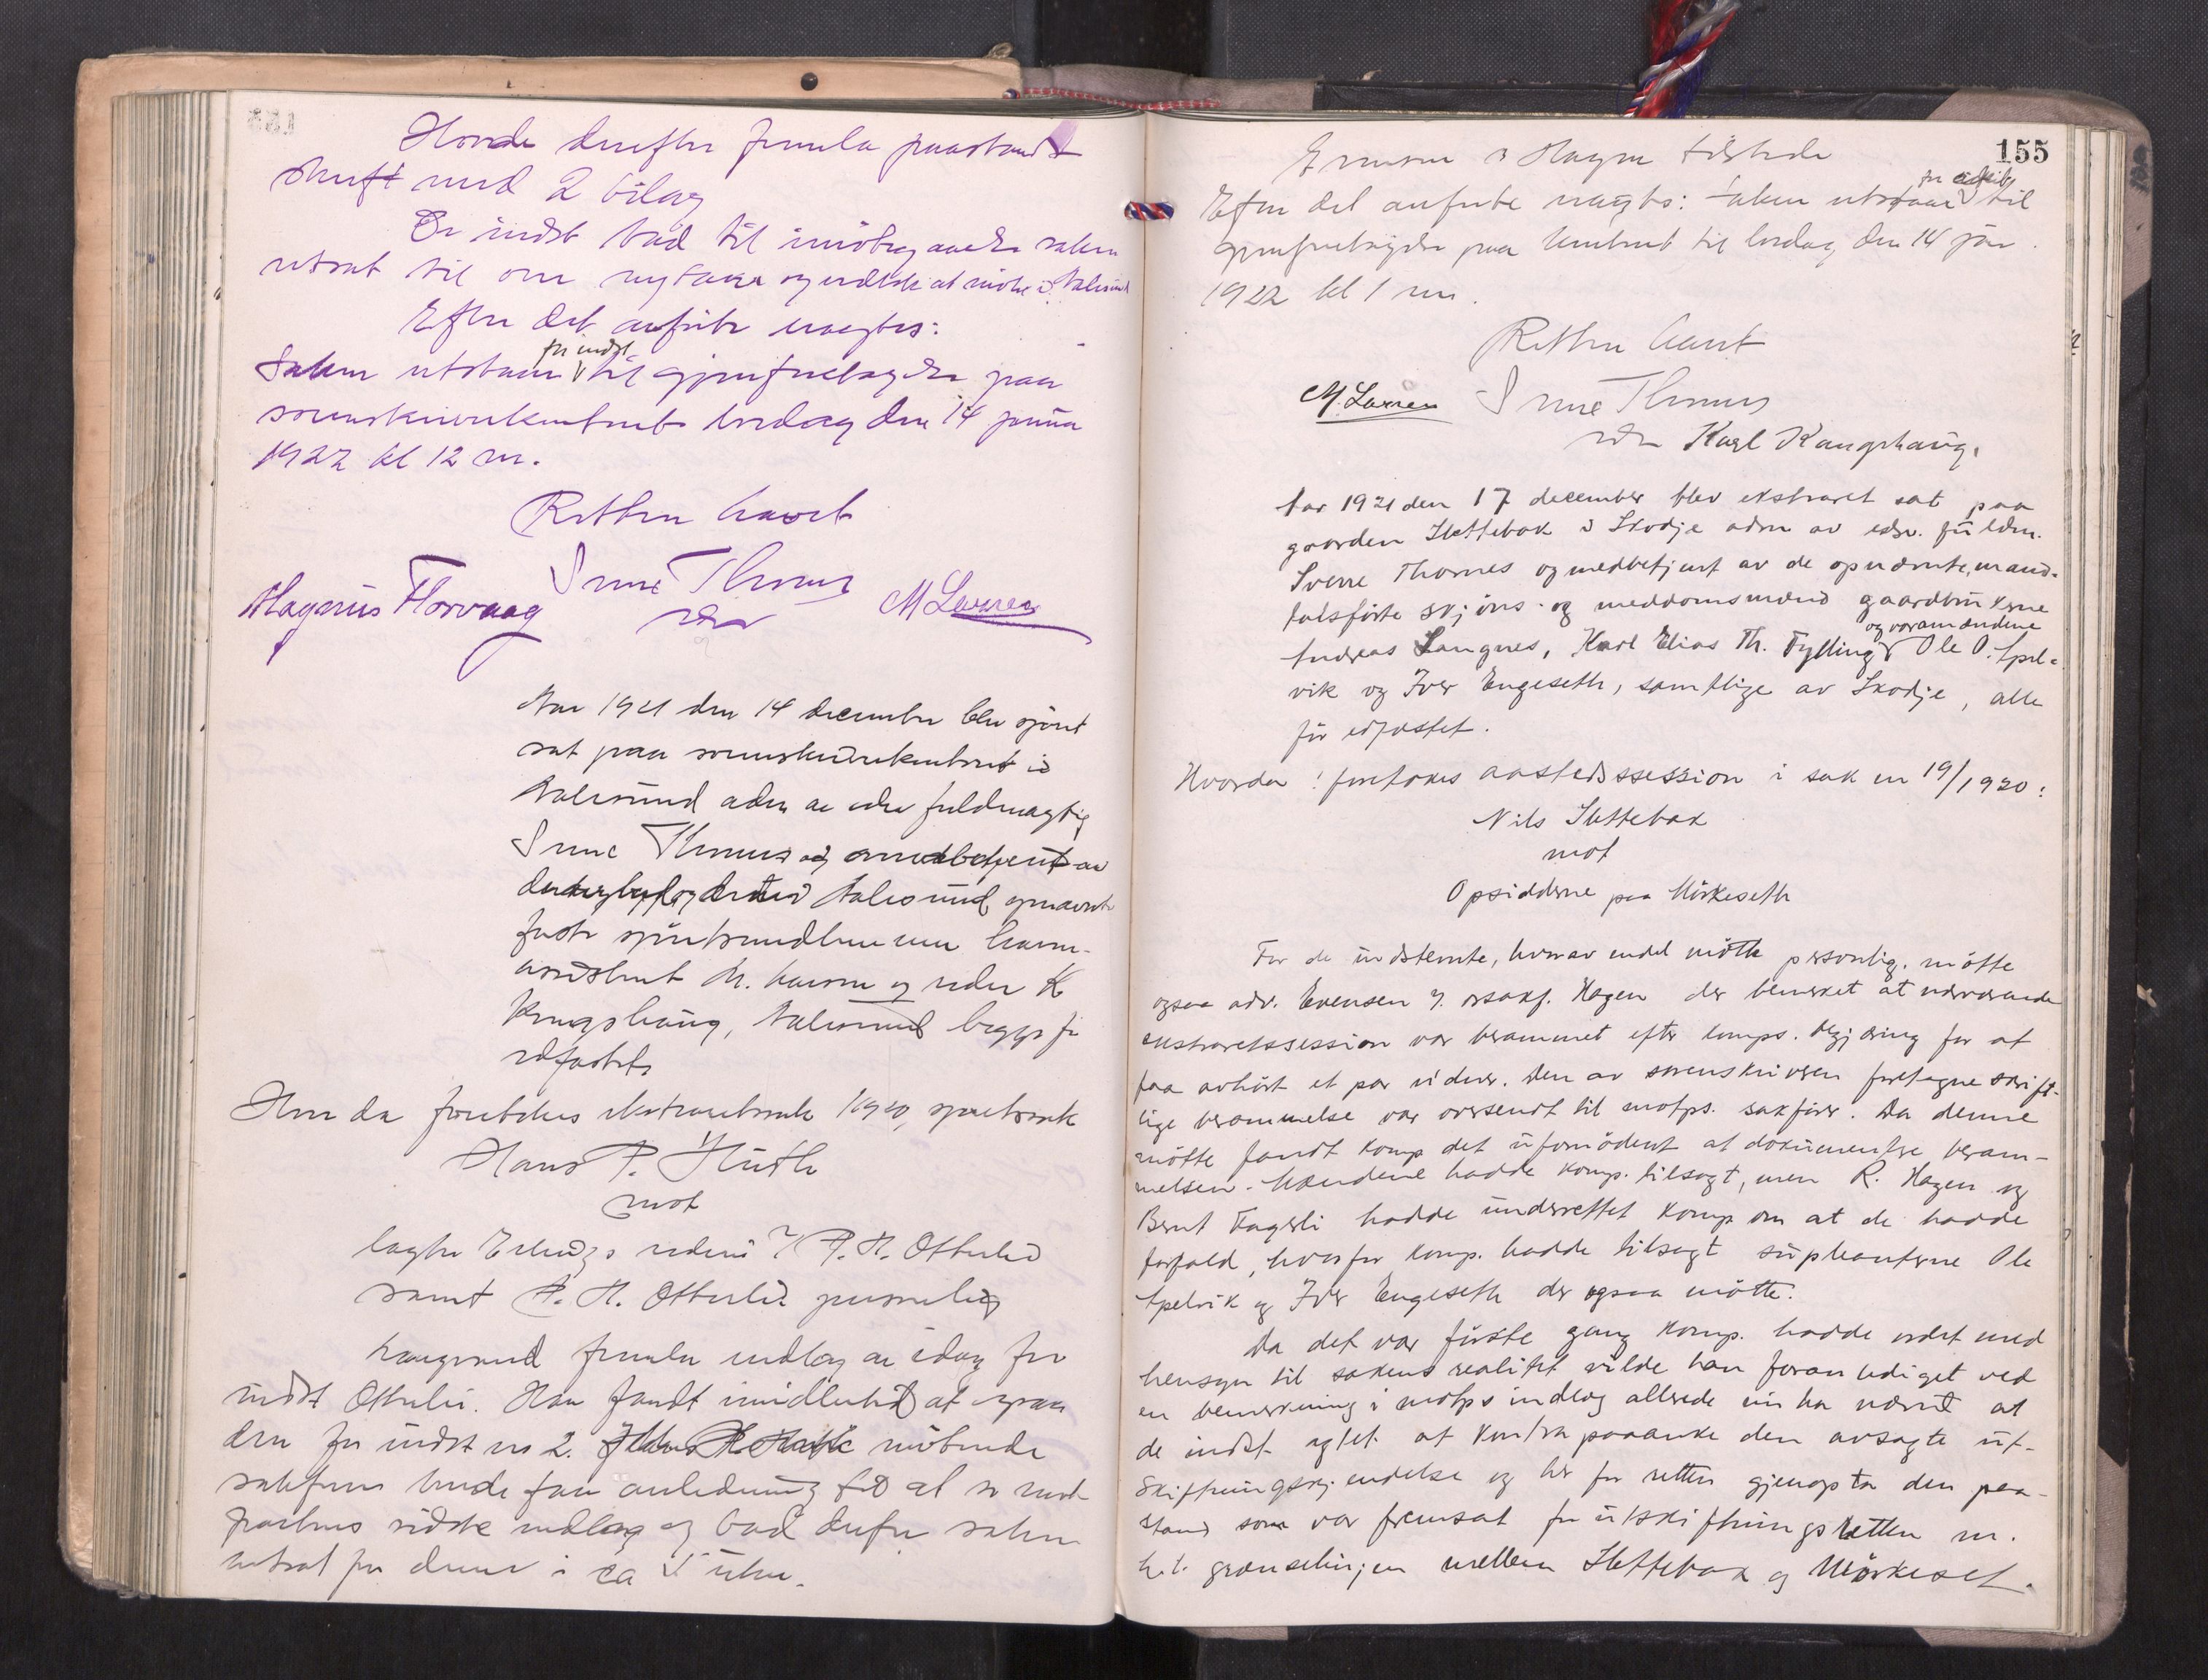 Hovde derefter fremla paastands
skrift med 2 bilag
For indst bad til imøtegaaelse saken
utsat til om nytaar og ønsket at møte i Aalesund
Efter det anførte vaagtes:
Saken utstaar for indst til gjenforetagelse paa
sorenskriverkontoret lørdag den 14 januar
1922 kl 12 m.
Retten hævet
Sverre Thornes
Magnus Florvaag
M Larsen
Aar 1921 den 14 december blev sjøret
sat paa sorenskriverkontoret i
Aalesund adm av edsv fuldmægtig
Sverre Thornes og medbetjent av
de i Aalesund opnævnte
faste sjøretsmedlemmer havne-
assistent M. Larsen og reder K
Kongshaug, Aalesund begge før
edfæstet
Hvor da foretokes ekstraretssak 1/1920, sjøretssak
Hans P. Huth
mot
P. H. Otterlei
samt P. H. Otterlei personlig
Langsund fremla indlæg av idag for
indst Otterlei. Han fandt imidlertid at ogsaa
den for indst no 2. møtende
sakfører burde faa anledning til at se mot-
partens sidste indlæg og bad derfor saken
utsat for denne i ca 5 uker.
155
Evensen & Hagen tilstede
Efter det anførte vaagtes: Saken utstaar til
gjenforetagelse paa kontoret til lørdag den 14 jan.
1922 kl 1 em.
Retten hævet
M. Larsen Sverre Thornes
Karl Kongshaug.
Aar 1921 den 17 december blev ekstraret sat paa
gaarden Slettebak i Skodje adm av edsv. fuldm.
Sverre Thornes og medbetjent av de opnævnte, mand-
talsførte skjøns- og meddomsmænd gaardbrukerne
og varamændene
Andreas Langnes, Karl Elias Th. Fylling Ole O. Spel-
vik og Iver Engeseth, samtlige av Skodje, alle
før edfæstet.
Hvorda: foretokes aastedssession i sak nr 19/1920:
Nils Slettebak
mot
Opsidderne paa Mørkeseth
For de indstevnte, hvorav endel møtte personlig, møtte
ogsaa adv. Evensen v. osakf. Hagen der bemerket at nærværende
ekstraretssession var berammet efter komps. begjæring for at
faa avhørt et par vidner. Den av sorenskriveren foretagne skrift-
lige berammelse var oversendt til motps. sakfører. Da denne
møtte fandt komp det ufornødent at dokumentere beram-
melsen. Mændene hadde komp. tilsagt, men R. Hagen og
Bernt Fagerli hadde underrettet komp om at de hadde
forfald, hvorfor komp. hadde tilsagt supleanterne Ole
Spelvik og Iver Engeseth der ogsaa møtte.
Da det var første gang komp. hadde ordet med
hensyn til sakens realitet vilde han foranlediget ved
en bemerkning i motps indlæg allerede nu ha nævnt at
de indst. agtet at kontrapaaanke den avsagte ut-
skiftningskjendelse og her for retten gjenopta den paa-
stand som var fremsat for utskiftningsretten m.
h. t. grænselinjen mellem Slettebak og Mørkeset.